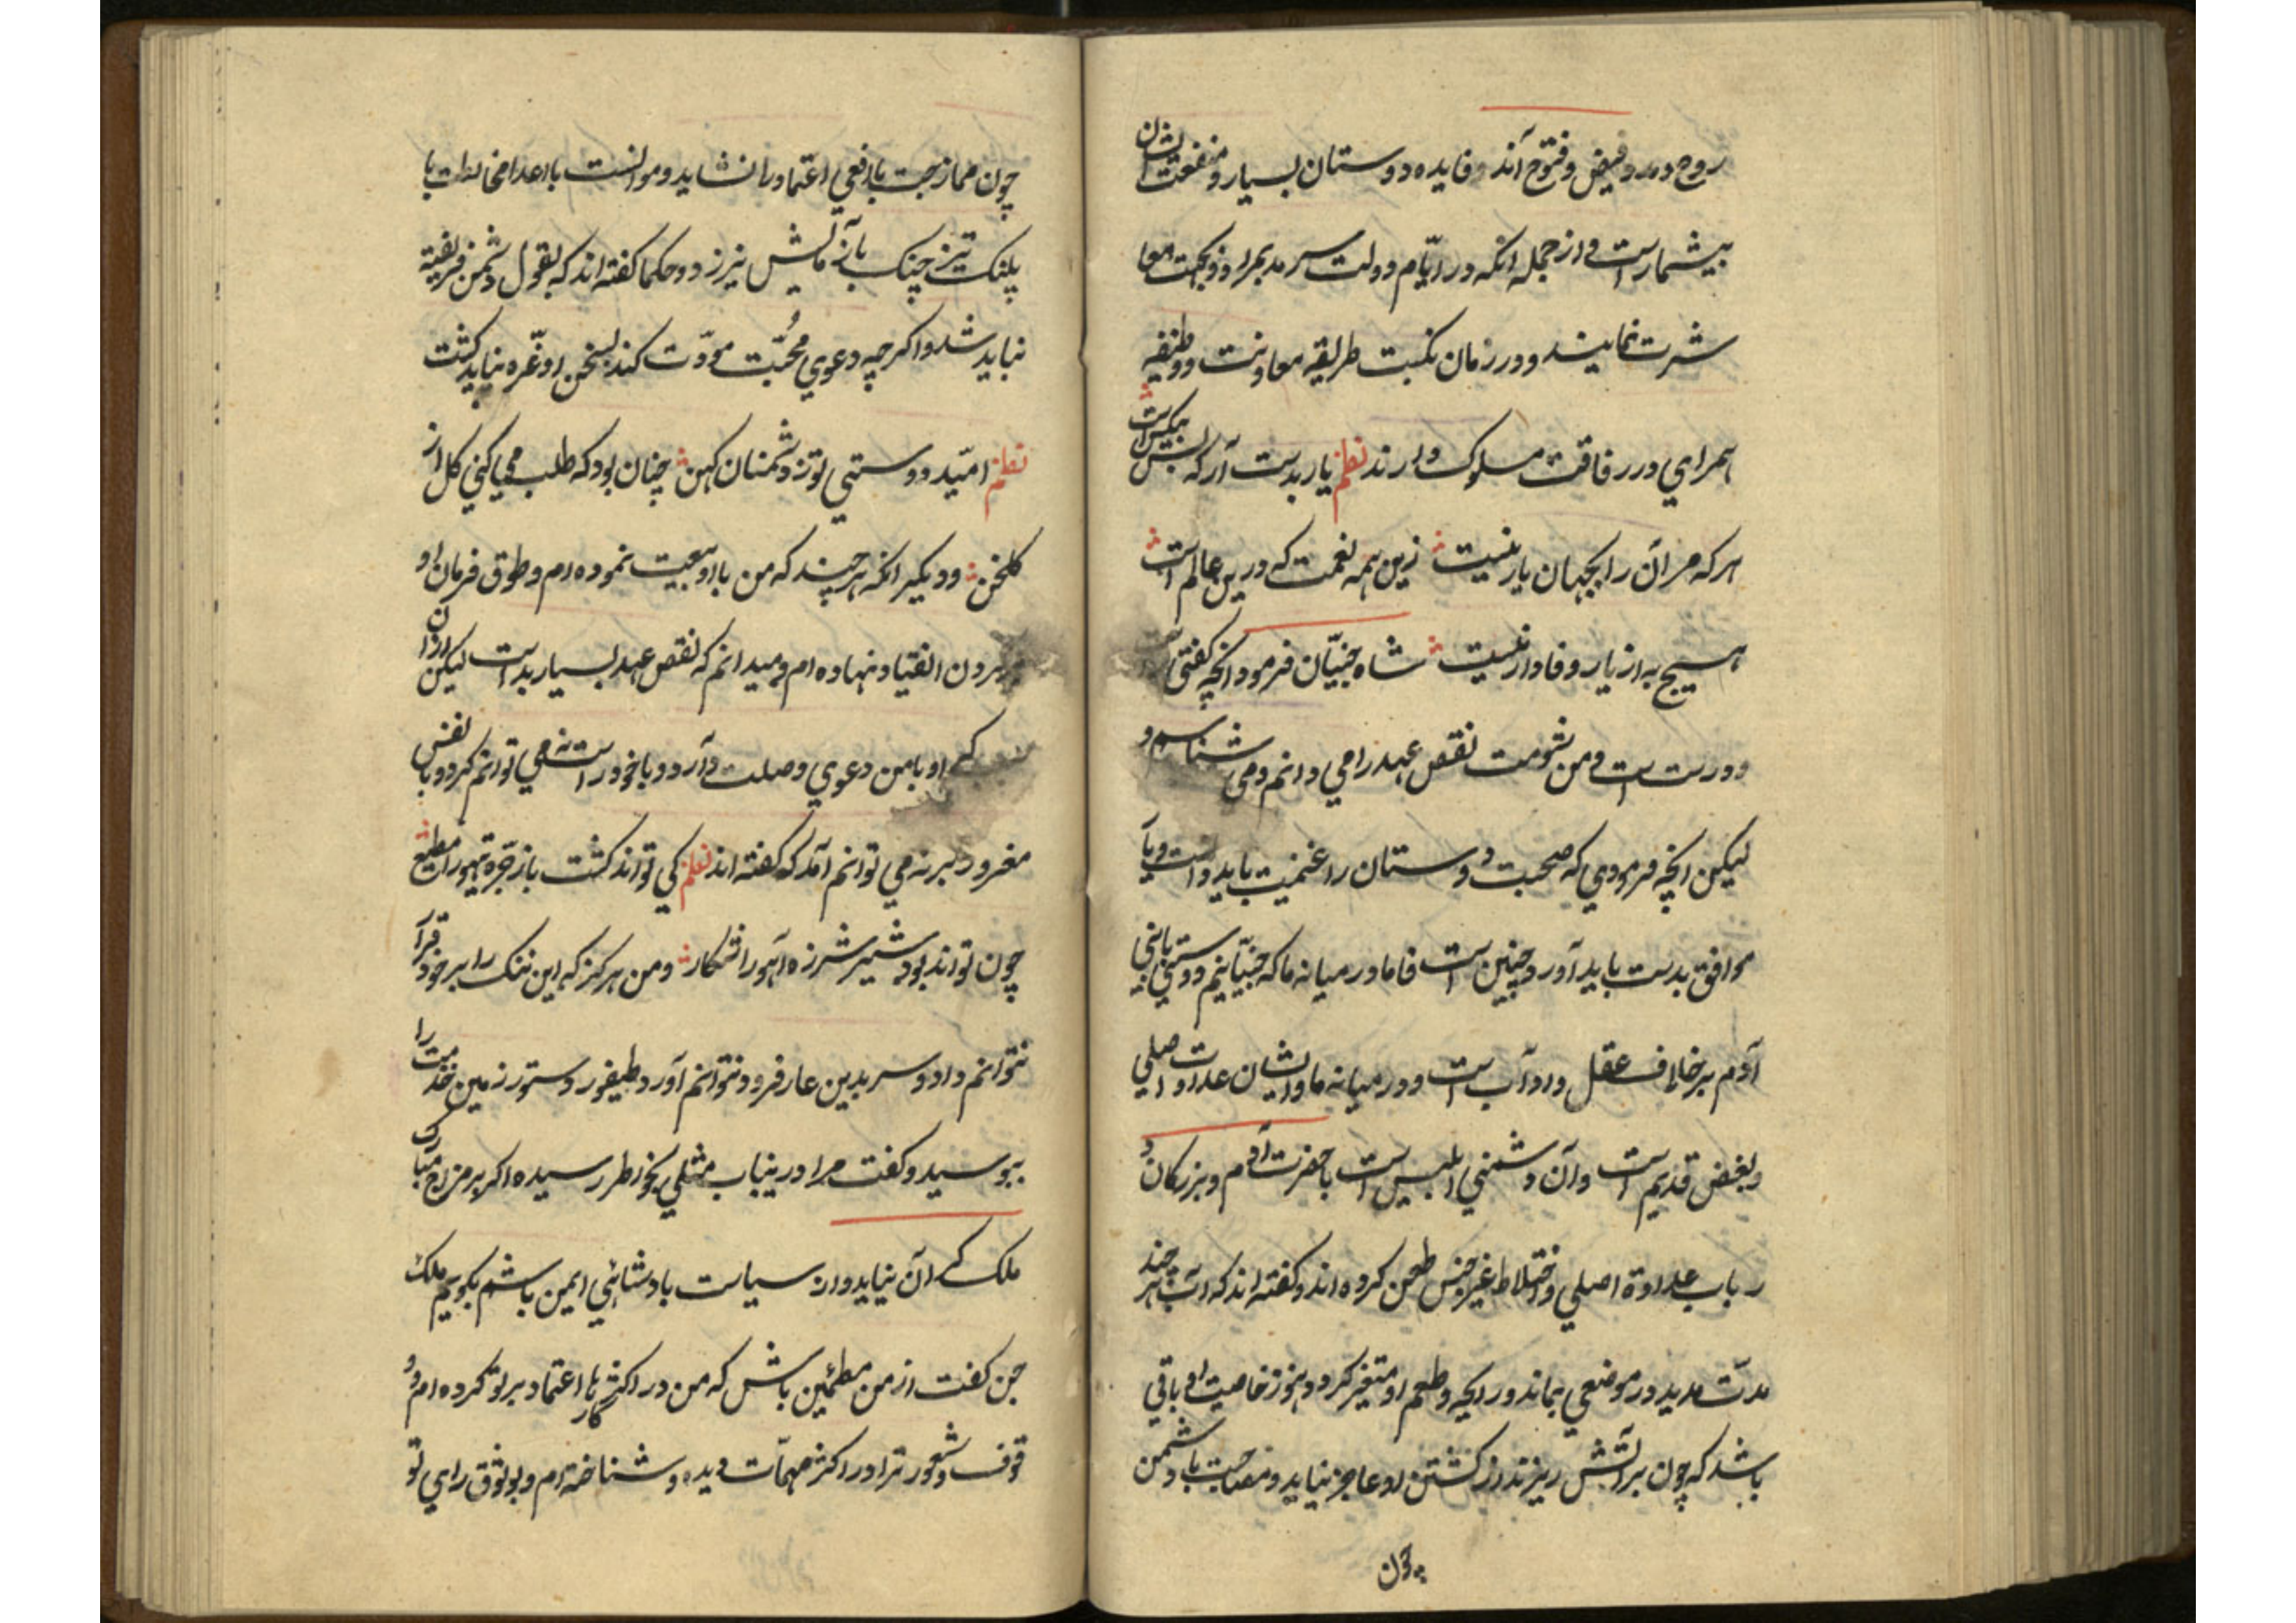 روح دمد و فیض و فتوح آند و فایده دوستان بسیار و منفعت ایشان
بیشمار است و از جمله انکه در ایّام دولت سر مد بمراد و بجهت معا
شرت نمایند و در زمان نکبت طریقه معاونت و وظیفه
همراهي در رفاقت مسلوک دارند نظم یار بدست آر که بس بیکس است
هر که مر آن را بجهان یار نیست زین همه نعمت که درین عالم است
هیچ به از یار وفادار نیست شاه جنیّان فرمود انچه کفتی
و درست است و من شومت نقص عهد را می دانم و می شناسم و
لیکن انچه فرمودي که صحبت دوستان را غنیمت باید دانست و یار
موافق بدست باید آورد چنین است فاما در میانه ما که جنیّانیم و دوستی با بنی
آدم بر خلاف عقل و ادآب است و در میانه ما و ایشان عداوت اصلي
و بغض قدیم است و آن دشمني ابلیس است با حضرت آدم و بزرکان د
ر باب عداوة اصلي و اختلاط غیر جنس طعن کرده اند و کفته اند که آب هر چند
مدّت مدید در موضعي بماند و رایحه و طعم او متغیر کردد هنوز خاصیت او باقي
باشد که چون بر آتش ریزند از کشتن او عاجز نیاید و مصاحبت با دشمن
چون
چون ممازجت با افعي اعتماد را نشاید و موانست با اعدا مخالطت با
پلنک تیز چنک بآزمایش نیرزد و حکما کفته اند که بقول دشمن فریفته
نباید شد و اکر چه دعوي محُبّت مودّت کند بسخن او غّره نباید کشت
نظم امیّد دوستي تو ز دشمنان کهن چنان بود که طلب مي کني کل از
کلخن و دیکر انکه هر چند که من با او بیعت نموده ام و طوق فرمان او
بر کردن انقیاد نهاده ام و میدانم که نقص عهد بسیار بد است لیکن از آن
که او با من دعوي وصلت دآرد و با خود راست نمي توانم کرد و با نفس
مغرور بر نه مي توانم آمد که کفته اند نظم کي تواند کشت باز جرّه تیهو را مطیع
چون تواند بود شیر شرزه آهو را شکار و من هر کز که این ننک را بر خود قرآر
نتوانم داد و سر بدین عار فرود نتوانم آورد طیفور دستور زمین خدمت را
ببوسید و کفت مرا درینباب مثلي بخواطر رسیده اکر بر مزاج مبارک
ملک کران نیاید و از سیاست بادشاهي ایمن باشم بکویم ملک
جن کفت از من مطمٔین باش که من در اکثر کارها اعتماد بر تو کرده ام و و
قوف و شعور ترا در اکثر مهمّات دیده و شناخته ام و بوثوق راي تو